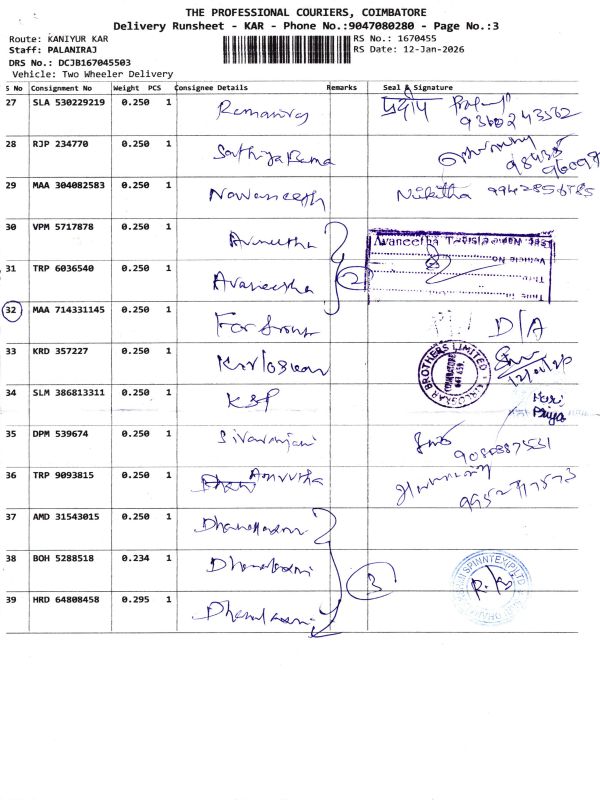 THE PROFESSIONAL COURIERS, COIMBATORE
Delivery Runsheet - KAR - Phone No.:9047080280 - Page No.:3
Route: KANIYUR KAR
RS No.: 1670455
Staff: PALANIRAJ
RS Date: 12-Jan-2026
DRS No.: DCJB167045503
Vehicle: Two Wheeler Delivery
S No Consignment No Weight PCS Consignee Details Remarks Seal & Signature
27 SLA 530229219 0.250 1 प्रदीप
28 RJP 234770 0.250 1 Sathiya Rama
29 MAA 304082583 0.250 1 Nawaneeth Nikitha
30 VPM 5717878 0.250 1 Avneetha
Avaneetha
31 TRP 6036540 0.250 1 Avaneetha 2
32 MAA 714331145 0.250 1 D/A
33 KRD 357227 0.250 1 Kirloskar
KIRLOSKAR BROTHERS LIMITED
34 SLM 386813311 0.250 1 KSP Hari Priya
35 DPM 539674 0.250 1 Sivaranjani
36 TRP 9093815 0.250 1 Amrutha 9952717573
37 AMD 31543015 0.250 1 Dhanalaxmi
38 BOH 5288518 0.234 1 Dhanalaxmi 3
39 HRD 64808458 0.295 1 Dhanalaxmi